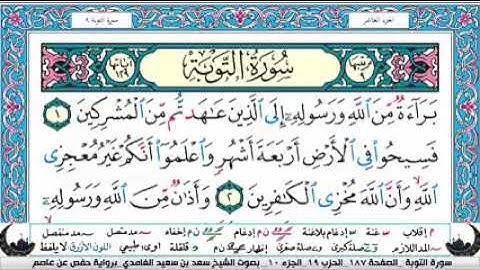 الجزء العاشر
سورة التوبة ٩
سُورَةُ التَّوْبَةِ
بَرَآءَةٌ مِّنَ ٱللَّهِ وَرَسُولِهِۦٓ إِلَى ٱلَّذِينَ عَٰهَدتُّم مِّنَ ٱلْمُشْرِكِينَ ١
فَسِيحُوا۟ فِى ٱلْأَرْضِ أَرْبَعَةَ أَشْهُرٍ وَٱعْلَمُوٓا۟ أَنَّكُمْ غَيْرُ مُعْجِزِى
ٱللَّهِ وَأَنَّ ٱللَّهَ مُخْزِى ٱلْكَٰفِرِينَ ٢ وَأَذَٰنٌ مِّنَ ٱللَّهِ وَرَسُولِهِۦٓ
م إقلاب غنة إدغام بلاغنة ن م إدغام ن م إخفاء مد متصل مد منفصل
المد اللازم صلة كبرى صلة صغرى إظهار ن م قلقلة طبيعي اللون الأزرق لا يلفظ
سورة التوبة _ صفحة ١٨٧ الحزب ١٩ _ الجزء ١٠ _ بصوت الشيخ سعد بن سعيد الغامدي _ برواية حفص عن عاصم